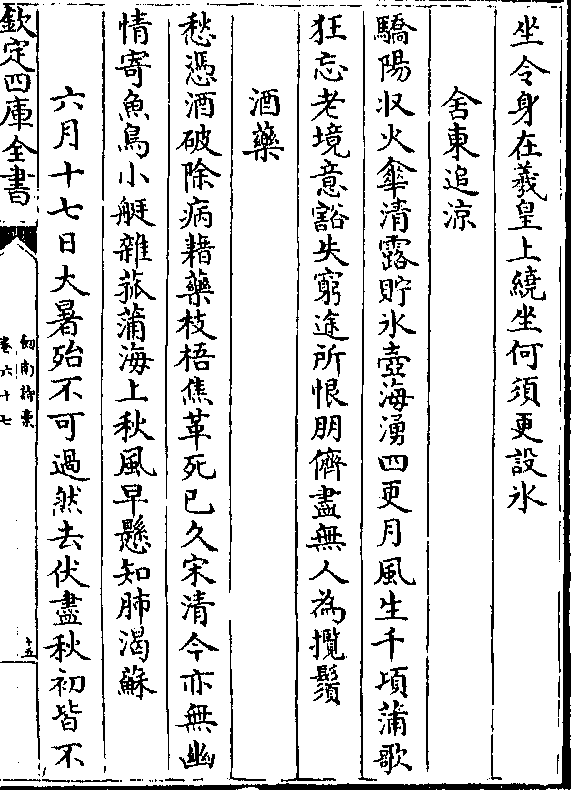 坐令身在羲皇上繞坐何須更設氷
舍東追涼
驕陽収火傘清露貯氷壺海湧四更月風生千項蒲歌
狂忘老境意豁失窮途所恨朋儕盡無人為攬鬚
酒藥
愁憑酒破除病藉藥枝梧焦革死已久宋清今亦無幽
情寄魚鳥小艇雜菰蒲海上秋風早懸知肺渴蘇
六月十七日大暑殆不可過然去伏盡秋初皆不
欽定四庫全書
劍南詩稾
卷六十七
十五